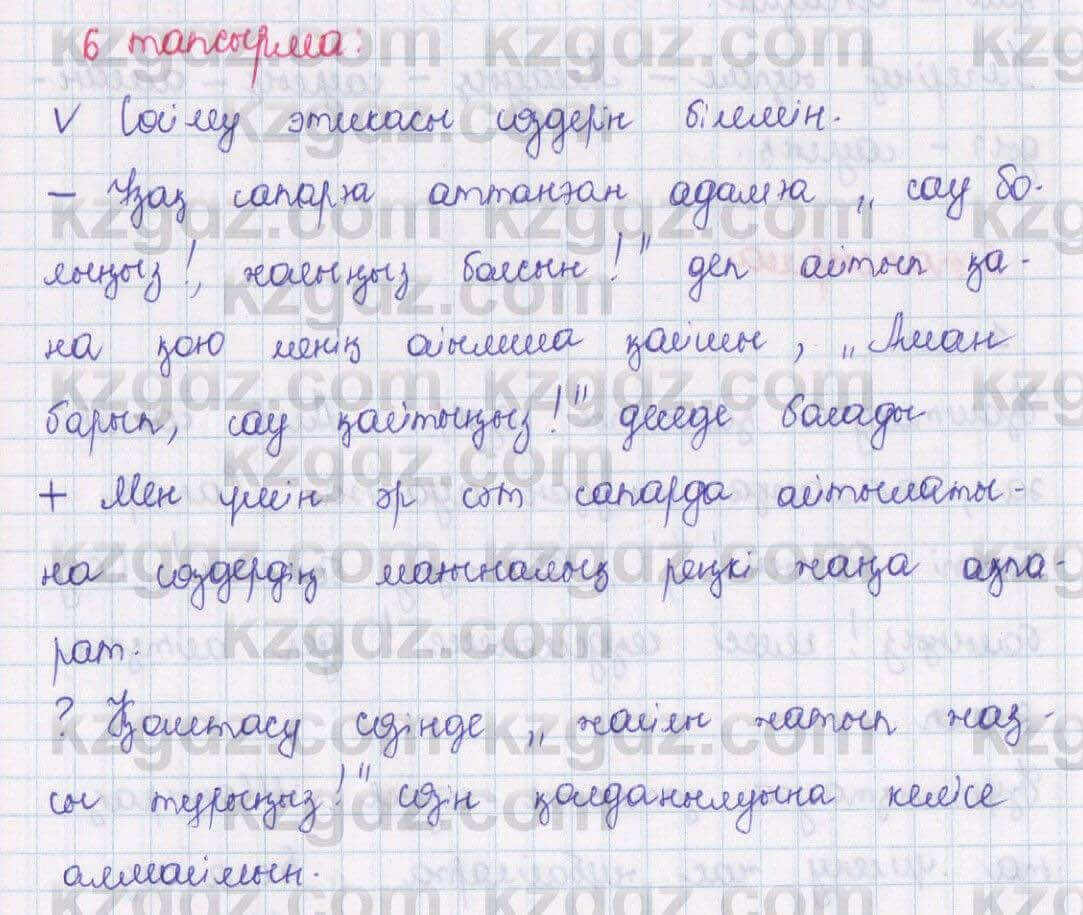 6 тапсырма:
V Сөйлеу этикасы сөздерін білемін.
– Ұзақ сапарға аттанған адамға „сау бо-
лыңыз!, жолыңыз болсын!" деп айтып қа-
на қою менің ойымша қайшы, „Аман
барып, сау қайтыңыз!" деседе болады
+ Мен үшін әр сәт сапарда айтылаты-
на сөздердің мағыналық реңкі жаңа ақпа-
рат.
? Қоштасу сөзінде „жайлы жатып жақ-
сы тұрыңыз!" сөзін қолданылуына келісе
алмаймын.
kzgdz.com